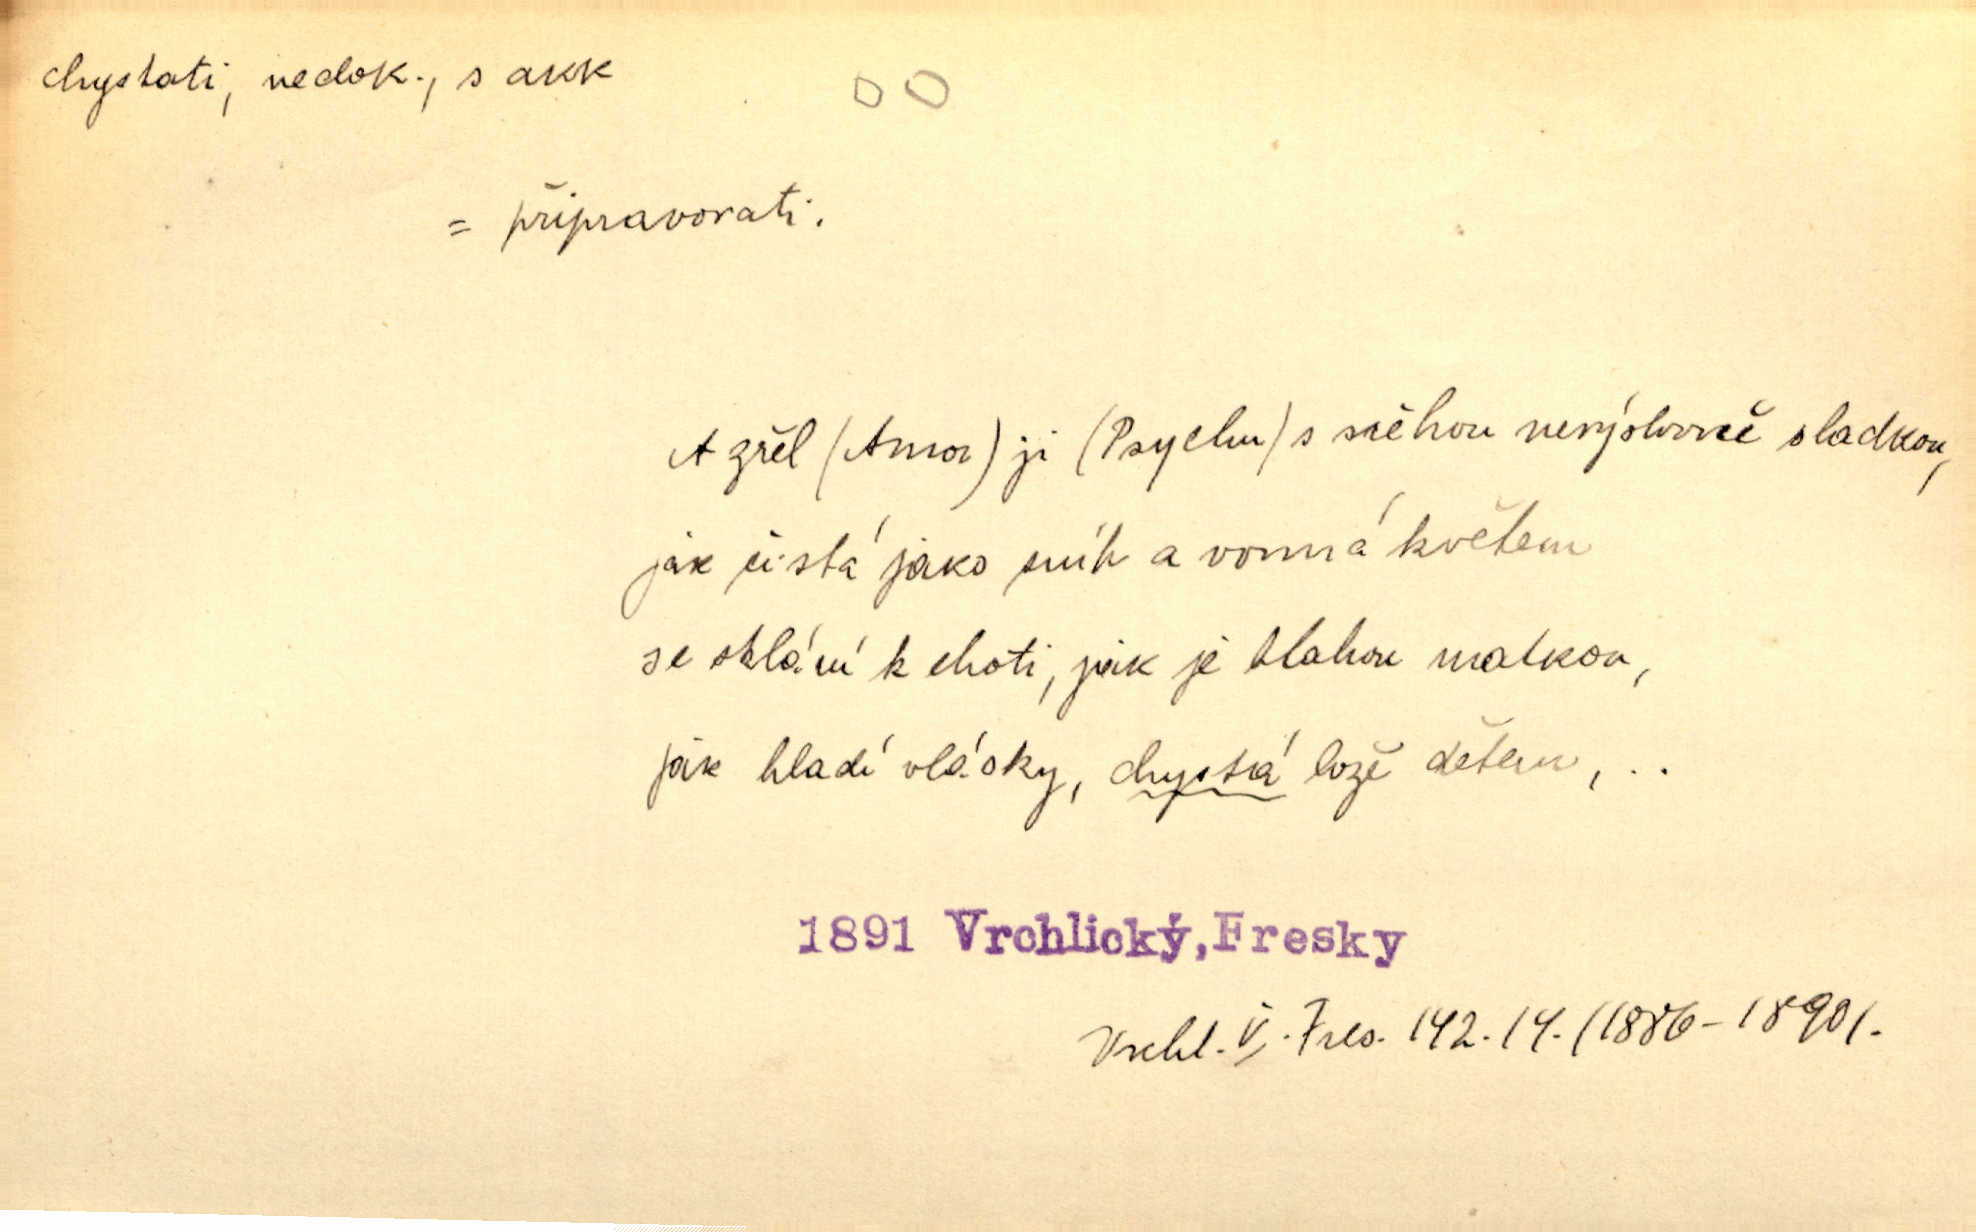 chystati, nedok., s akk
= připravovati.
A zřel (Amor) ji (Psychu) s něhou nevýslovně sladkou,
jak čistá jako sníh a vonná květem
se sklání k choti, jak je blahou matkou,
jak hladí vlásky, chystá lože dětem, ..
1891 Vrchlický, Fresky
Vrchl. Fres. 142. 14. (1886-1890).